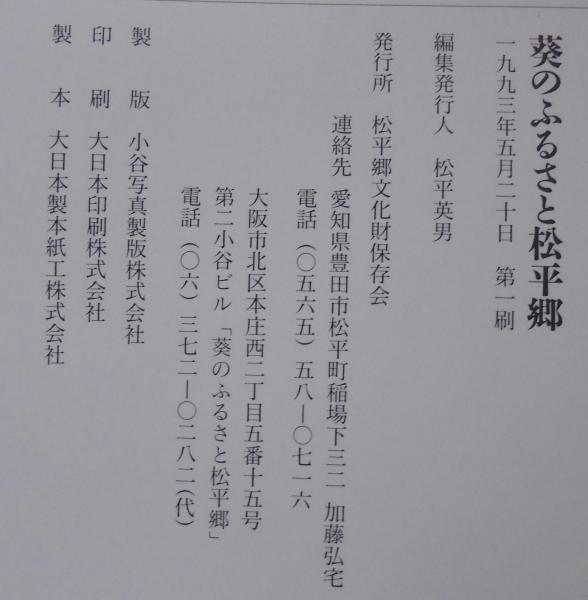 葵のふるさと松平郷
一九九三年五月二十日 第一刷
編集発行人 松平英男
発行所 松平郷文化財保存会
連絡先 愛知県豊田市松平町稲場下三二 加藤弘宅
電話(〇五六五)五八―〇七一六
大阪市北区本庄西二丁目五番十五号
第二小谷ビル「葵のふるさと松平郷」
電話(〇六)三七二―〇二八二(代)
製版 小谷写真製版株式会社
印刷 大日本印刷株式会社
製本 大日本製本紙工株式会社